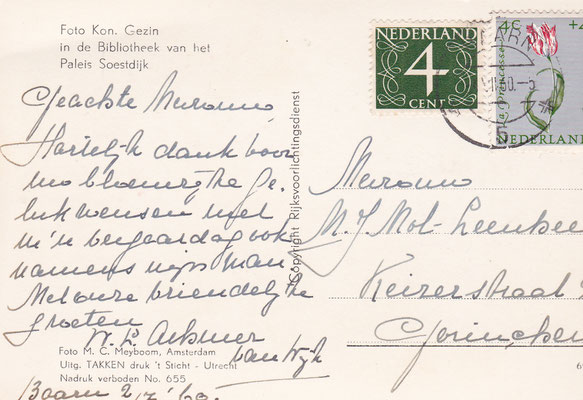 Foto Kon. Gezin
in de Bibliotheek van het
Paleis Soestdijk
NEDERLAND
4
CENT
4c
+4
La Princesse
NEDERLAND
5
Geachte Mevrouw
Hartelijk dank voor
uw bloemrijke ge-
lukwensen met
m'n verjaardag ook
namens mijn man.
Met onze vriendelijke
groeten
van Wijk
Baarn 2/7 '60.
©Copyright Rijksvoorlichtingsdienst
Mevrouw
M.J. Mol-
Keizerstraat
Gorinchem
Foto M. C. Meyboom, Amsterdam
Uitg. TAKKEN druk 't Sticht - Utrecht
Nadruk verboden No. 655